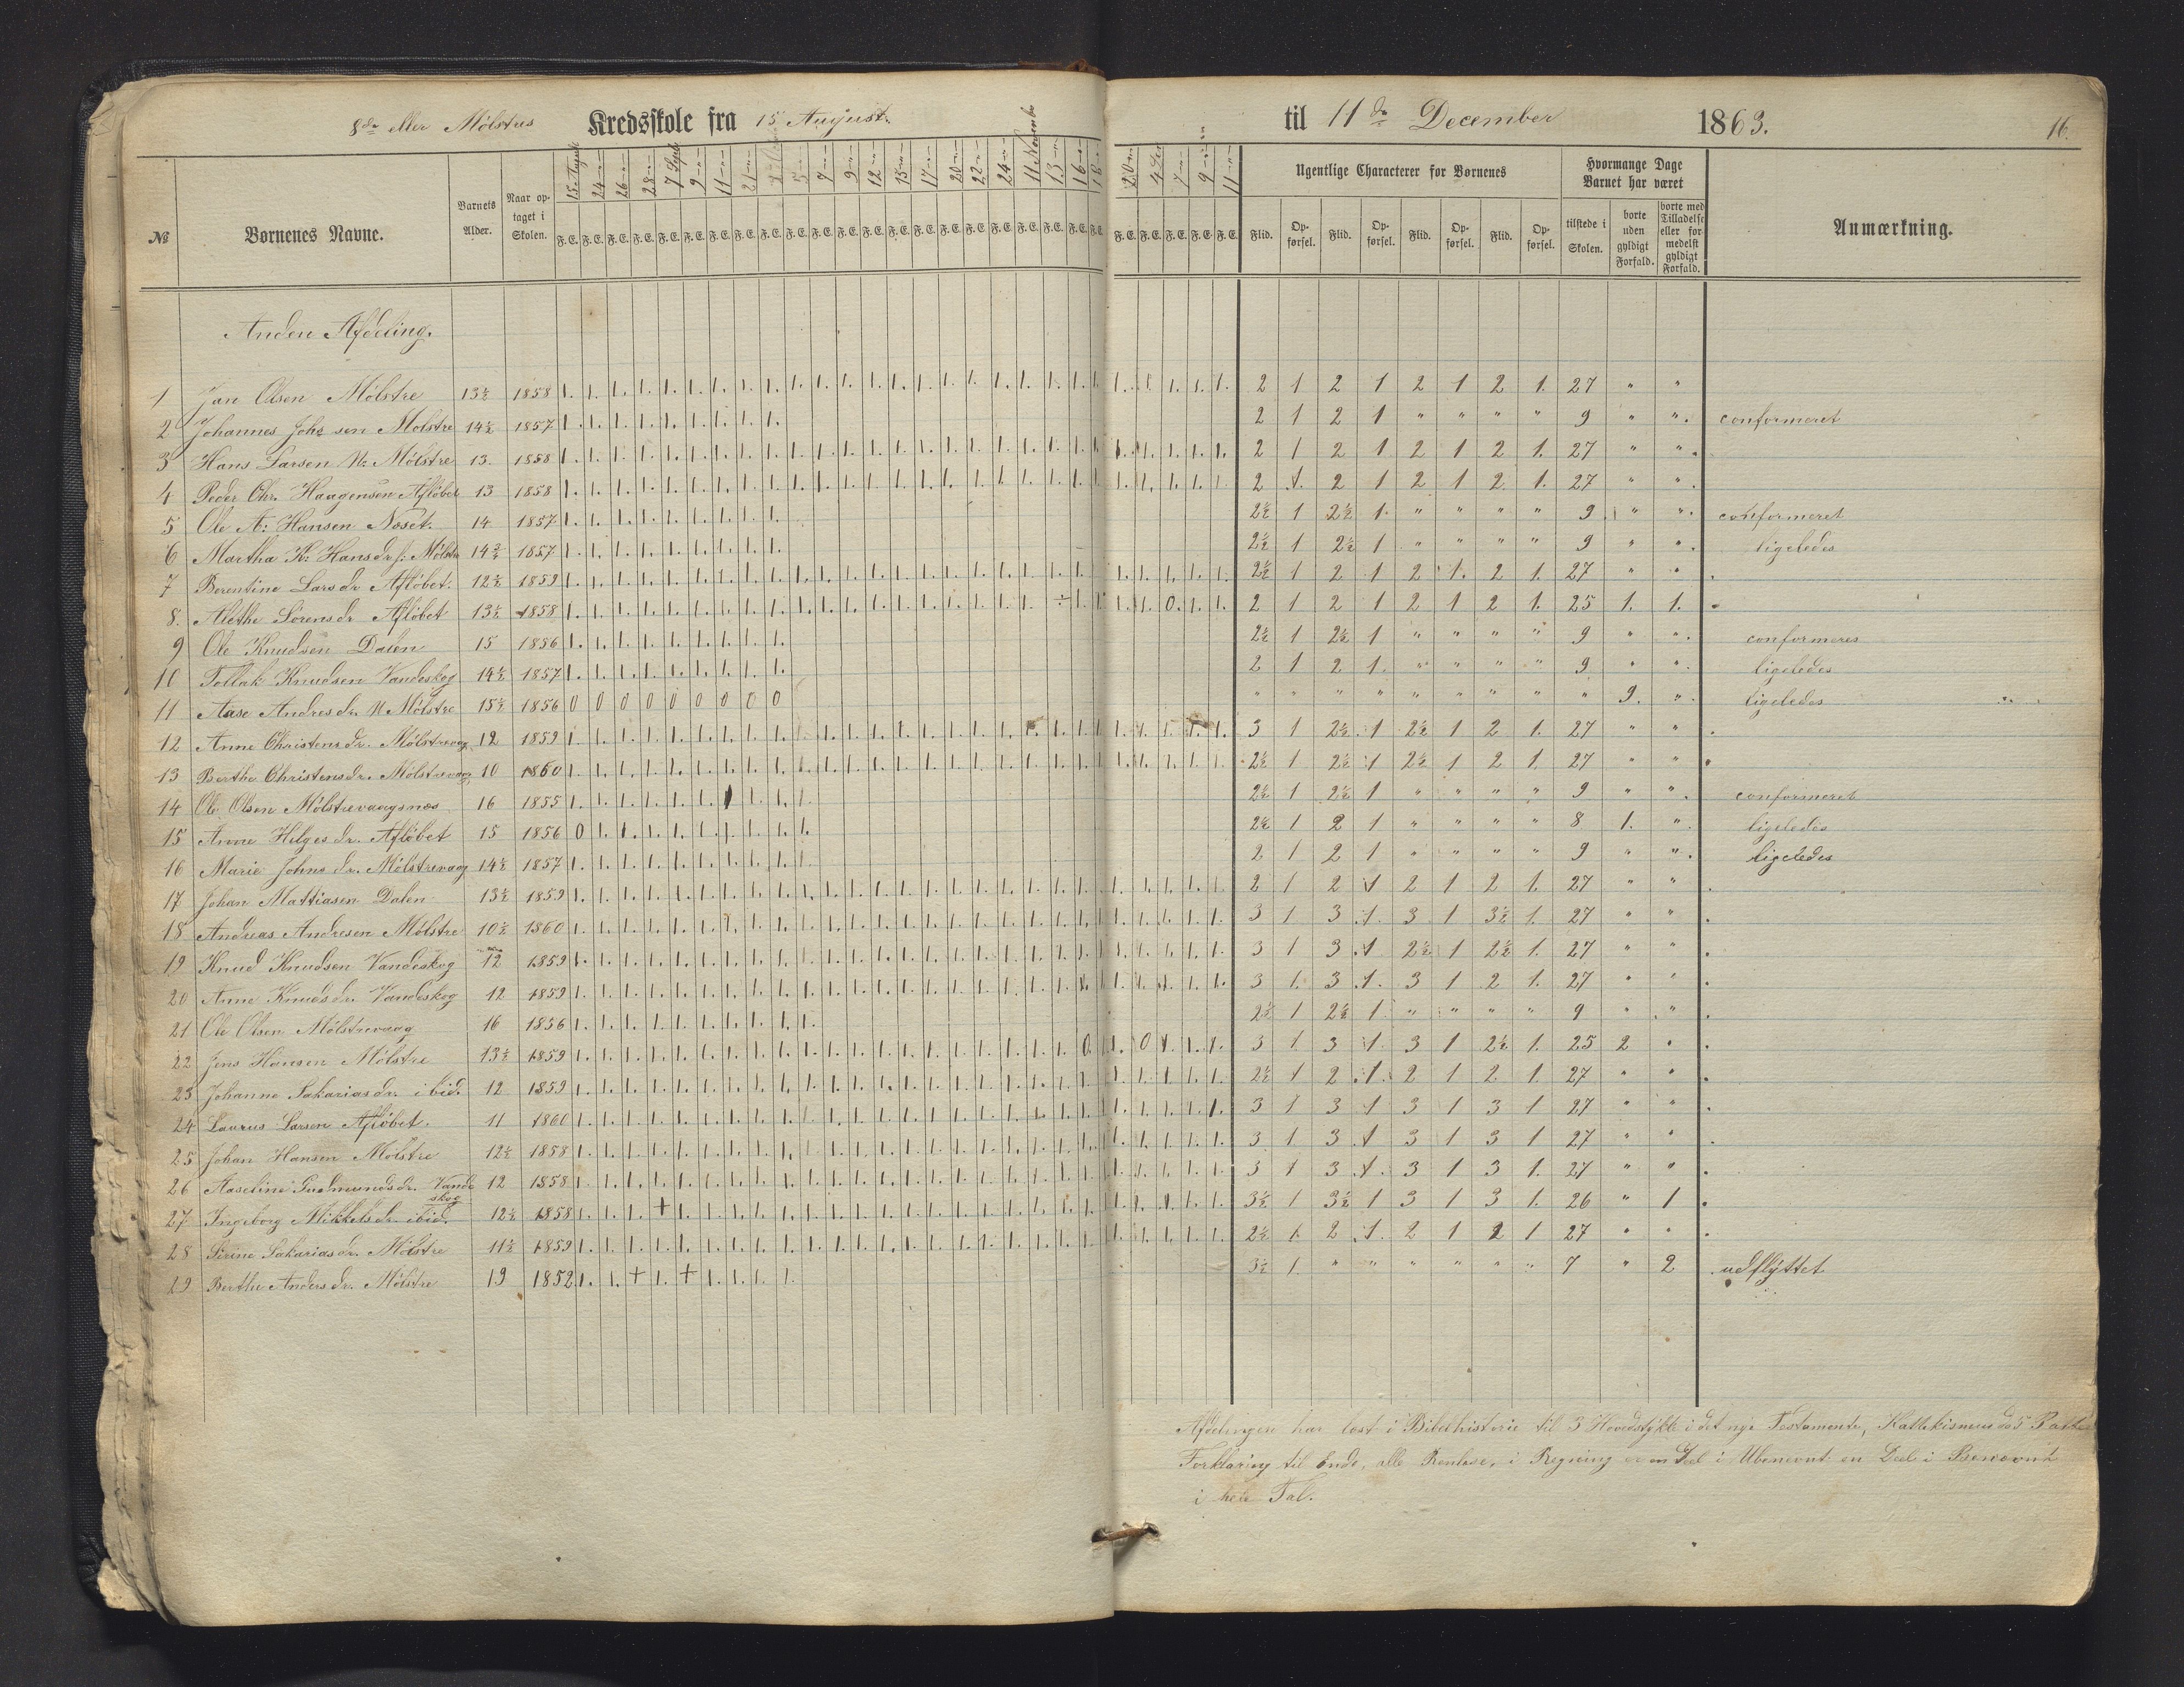 8de eller Mølstres Kredsskole fra 15 August til 11de December 1863. 16.
№ Børnenes Navne. Barnets Alder. Naar optaget i Skolen. Ugentlige Characterer for Børnenes Hvormange Dage Barnet har været Anmærkning.
15 August 24 26 28 7 Sept 9 11 21 5 7 9 12 15 17 20 22 24 11 November 13 16 18 20 4 Dec 7 9 11
F. E. Flid. Opførsel. Flid. Opførsel. Flid. Opførsel. Flid. Opførsel. tilstede i Skolen. borte uden gyldigt Forfald. borte med Tilladelse eller formedelst gyldigt Forfald.
Anden Afdeling.
1 Jan Olsen Mølstre 13½ 1858 2 1 2 1 2 1 2 1. 27 " "
2 Johannes Johs sen Mølstre 14½ 1857 2 1 2 1 " " " " 9 " ". conformeret
3 Hans Larsen N: Mølstre 13. 1858 2 1 2 1 2 1 2 1. 27 " ".
4 Peder Chr. Haagensen Afløbet 13 1858 2 1. 2 1 2 1 2 1. 27 " ".
5 Ole A: Hansen Næset. 14 1857 2½ 1 2½ 1. " " " " 9. " ". conformeret
6 Martha K: Hansdr. Mølstre 14½ 1857 2½ 1 2½ 1. " " " " 9 " ". ligeledes
7 Berentine Larsdr Afløbet. 12½ 1859 2½ 1 2 1 2 1. 2 1. 27 " " .
8. Alethe Sörensdr Afløbet 13½ 1858 2 1 2 1 2 1 2 1. 25 1. 1. .
9 Ole Knudsen Dalen 15 1856 2½ 1 2½ 1 " " " " 9 " ". conformeres
10 Tollak Knudsen Vandeskog 14½ 1857 2 1 2 1. " " " " 9 " ". ligeledes
11 Aase Andresdr. N Mølstre 15½ 1856 0 0 0 0 0 0 0 0 0 " " " " " " " " " 9. ". ligeledes
12 Anne Christensdr. Mølstrevaag 12 1859 3 1 2½ 1 2½ 1 2 1. 27 " " .
13 Berthe Christensdr. Mølstrevaag 10 1860 2½ 1 2½ 1 2½ 1 2 1. 27 " " .
14 Ole Olsen Mølstrevaagsnæs 16 1855 2½ 1 2½ 1 " " " " 9 " ". conformeret
15 Anne Helgesdr. Afløbet 15 1856 2½ 1 2 1 " " " " 8 1. ". ligeledes
16 Marie Johnsdr. Mølstrevaag 14½ 1857 2 1 2 1 " " " " 9 " ". ligeledes
17 Johan Mattiasen Dalen 13½ 1859 2 1 2 1 2 1 2 1. 27 " " .
18 Andreas Andresen Mølstre 10½ 1860 3 1 3 1. 3 1 3½ 1. 27 " " .
19 Knud Knudsen Vandeskog 12 1859 3 1 3 1 2½ 1 2½ 1. 27 " " .
20 Anne Knudsdr. Vandeskog 12 1859 3 1. 3 1. 3 1 2 1. 27 " " .
21 Ole Olsen Mølstrevaag 16 1856 2½ 1 2½ 1 " " " " 9 " " .
22 Jens Hansen Mølstre 13½ 1859 3 1 3 1. 3 1 2½ 1. 25 2 " .
23 Johanne Sakariasdr. ibid. 12 1859 2½ 1 2 1. 2 1 2 1. 27 " " .
24 Laurus Larsen Afløbet. 11 1860 3 1 3 1 3 1 3 1 27 " " .
25 Johan Hansen Mølstre 12½ 1858 3 1 3 1 3 1 3 1 27 " " .
26 Aaseline Gudmundsdr. Vandeskog 12 1858 3 1 3 1. 3 1 3 1. 27 " " .
27 Ingeborg Mikkelsdr. ibid. 12½ 1858 3½ 1 3½ 1 3 1 3 1. 26 " 1 .
28 Serine Sakariasdr. Mølstre 11½ 1859 2½ 1. 2 1. 2 1 2 1 27 " " .
29 Berthe Andersdr. Mølstre 19 1852 3½ 1. " " " " " " 7 " 2 . udflyttet
Afdelingen har læst i Bibelhistorie til 3 Hovedstykke i det nye Testamente, Kattekismus de 5 Parter
Forklaring til Ende, alle Renlæse, i Regning en Deel i Ubenævnt en Deel i Benævnt
i hele Tal.